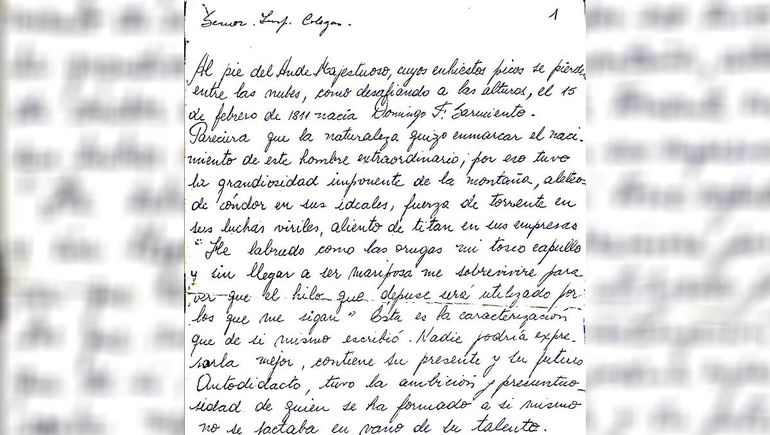 Señor. Insp. Colegas.
1
Al pie del Ande Majestuoso, cuyos enhiestos picos se pierden
entre las nubes, como desafiando a las alturas, el 15
de febrero de 1811 nacía Domingo F. Sarmiento.
Pareciera que la naturaleza quizo enmarcar el naci-
miento de este hombre extraordinario; por eso tuvo
la grandiosidad imponente de la montaña, aleteo
de cóndor en sus ideales, fuerza de torrente en
sus luchas viriles, aliento de titan en sus empresas
"He labrado como las orugas mi tosco capullo
y sin llegar a ser mariposa me sobrevivire para
ver que el hilo que depuse será utilizado por
los que me sigan" Esta es la caracterización
que de si mismo escribió. Nadie podría expre-
sarla mejor, contiene su presente y su futuro
Autodidacto, tuvo la ambición y presuntuo-
sidad de quien se ha formado a si mismo
no se jactaba en vano de su talento.